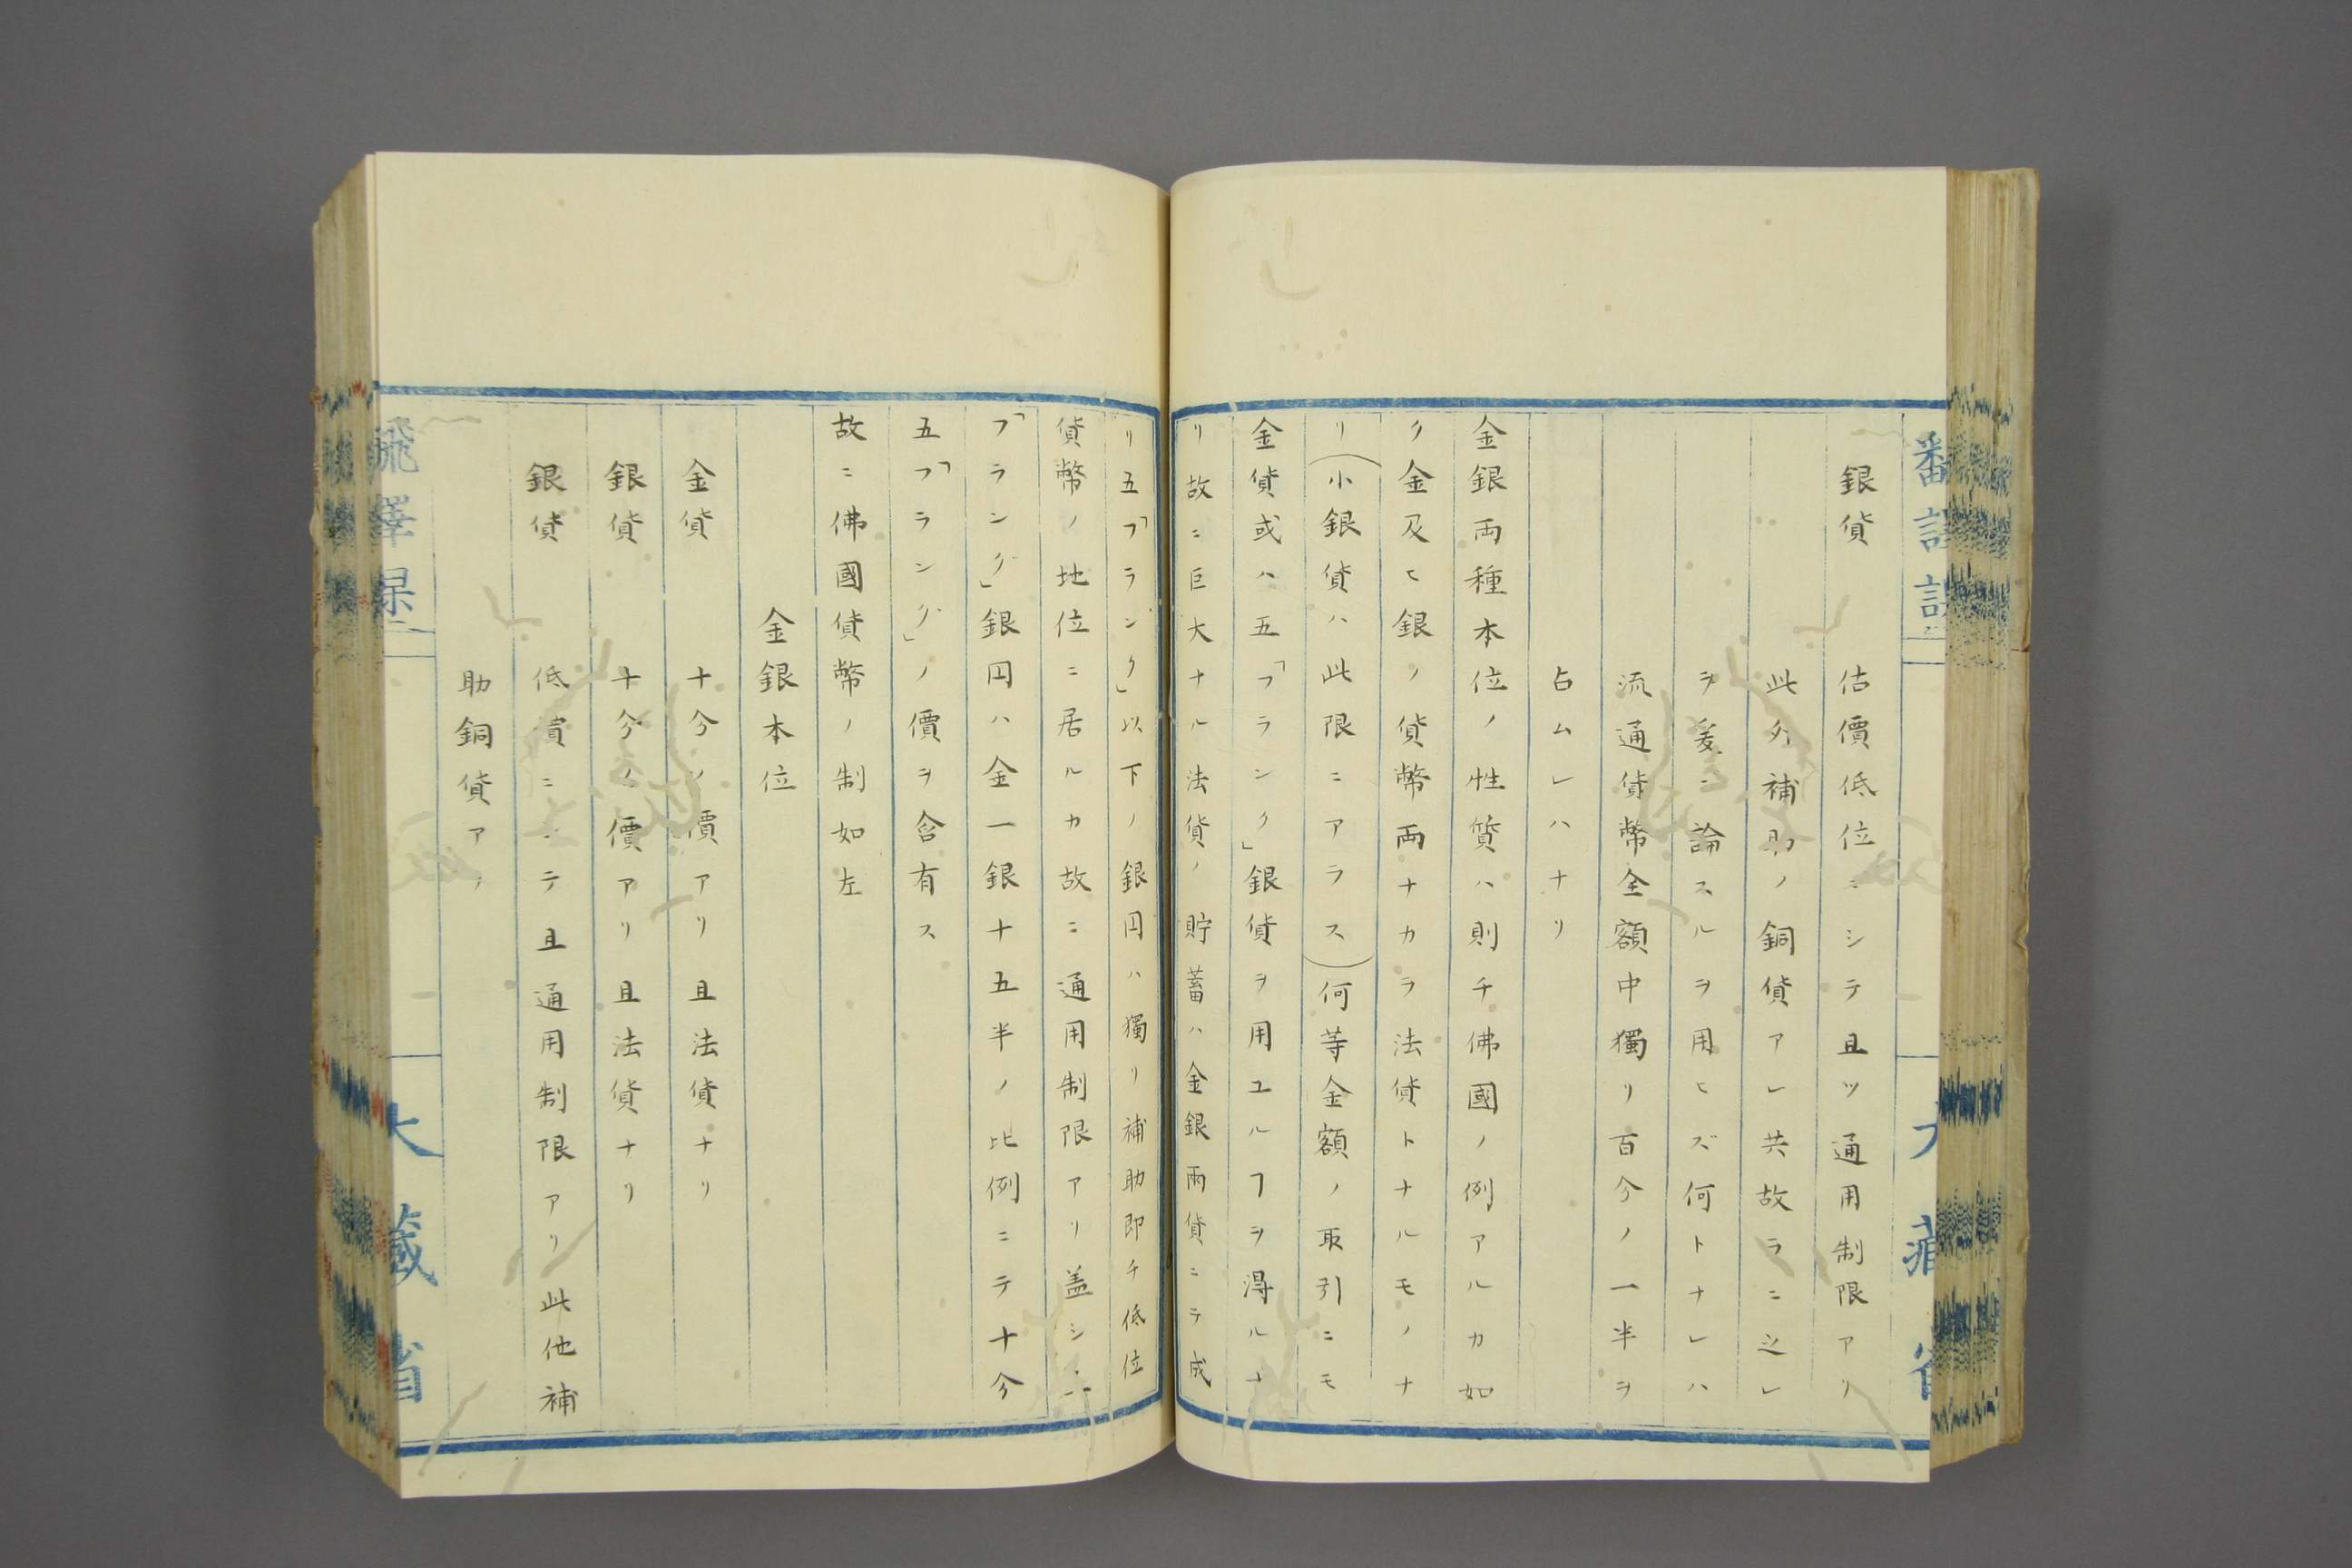 銀貨　估價低位ニシテ且ツ通用制限アリ
此外補助ノ銅貨アレ共故ラニ之レ
ヲ爰ニ論スルヲ用ヒズ何トナレハ
流通貨幣全額中獨リ百分ノ一半ヲ
占ムレハナリ
金銀両種本位ノ性質ハ則チ佛國ノ例アルカ如
ク金及ヒ銀ノ貨幣両ナカラ法貨トナルモノナ
リ(小銀貨ハ此限ニアラス)何等金額ノ取引ニモ
金貨或ハ五「フランク」銀貨ヲ用ユルヿヲ得ルナ
リ故ニ巨大ナル法貨ノ貯蓄ハ金銀兩貨ニテ成
リ五「フランク」以下ノ銀円ハ獨リ補助即チ低位
貨幣ノ地位ニ居ルカ故ニ通用制限アリ盖シ二
「フランク」銀円ハ金一銀十五半ノ比例ニテ十分
五「フランク」ノ價ヲ含有ス
故ニ佛國貨幣ノ制如左
金銀本位
金貨　十分ノ價アリ且法貨ナリ
銀貨　十分ノ價アリ且法貨ナリ
銀貨　低價ニシテ且通用制限アリ此他補
助銅貨アリ
大藏省